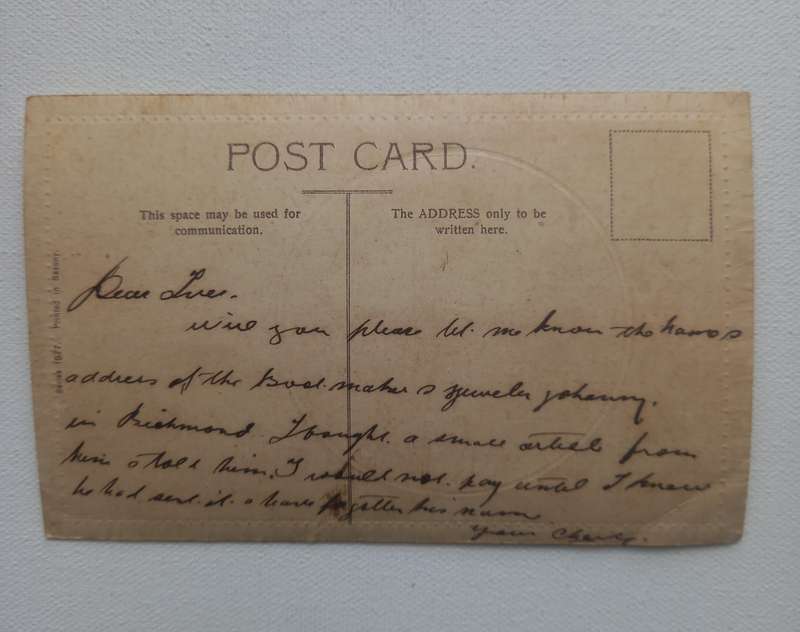 POST CARD.
This space may be used for
communication.
The ADDRESS only to be
written here.
Printed in Saxony.
Dear
will you please let me know the name &
address of the maker & jeweler
in Richmond. I bought a small article from
him & told him I would not pay until I knew
he had sent it & have forgotten his name
Yours